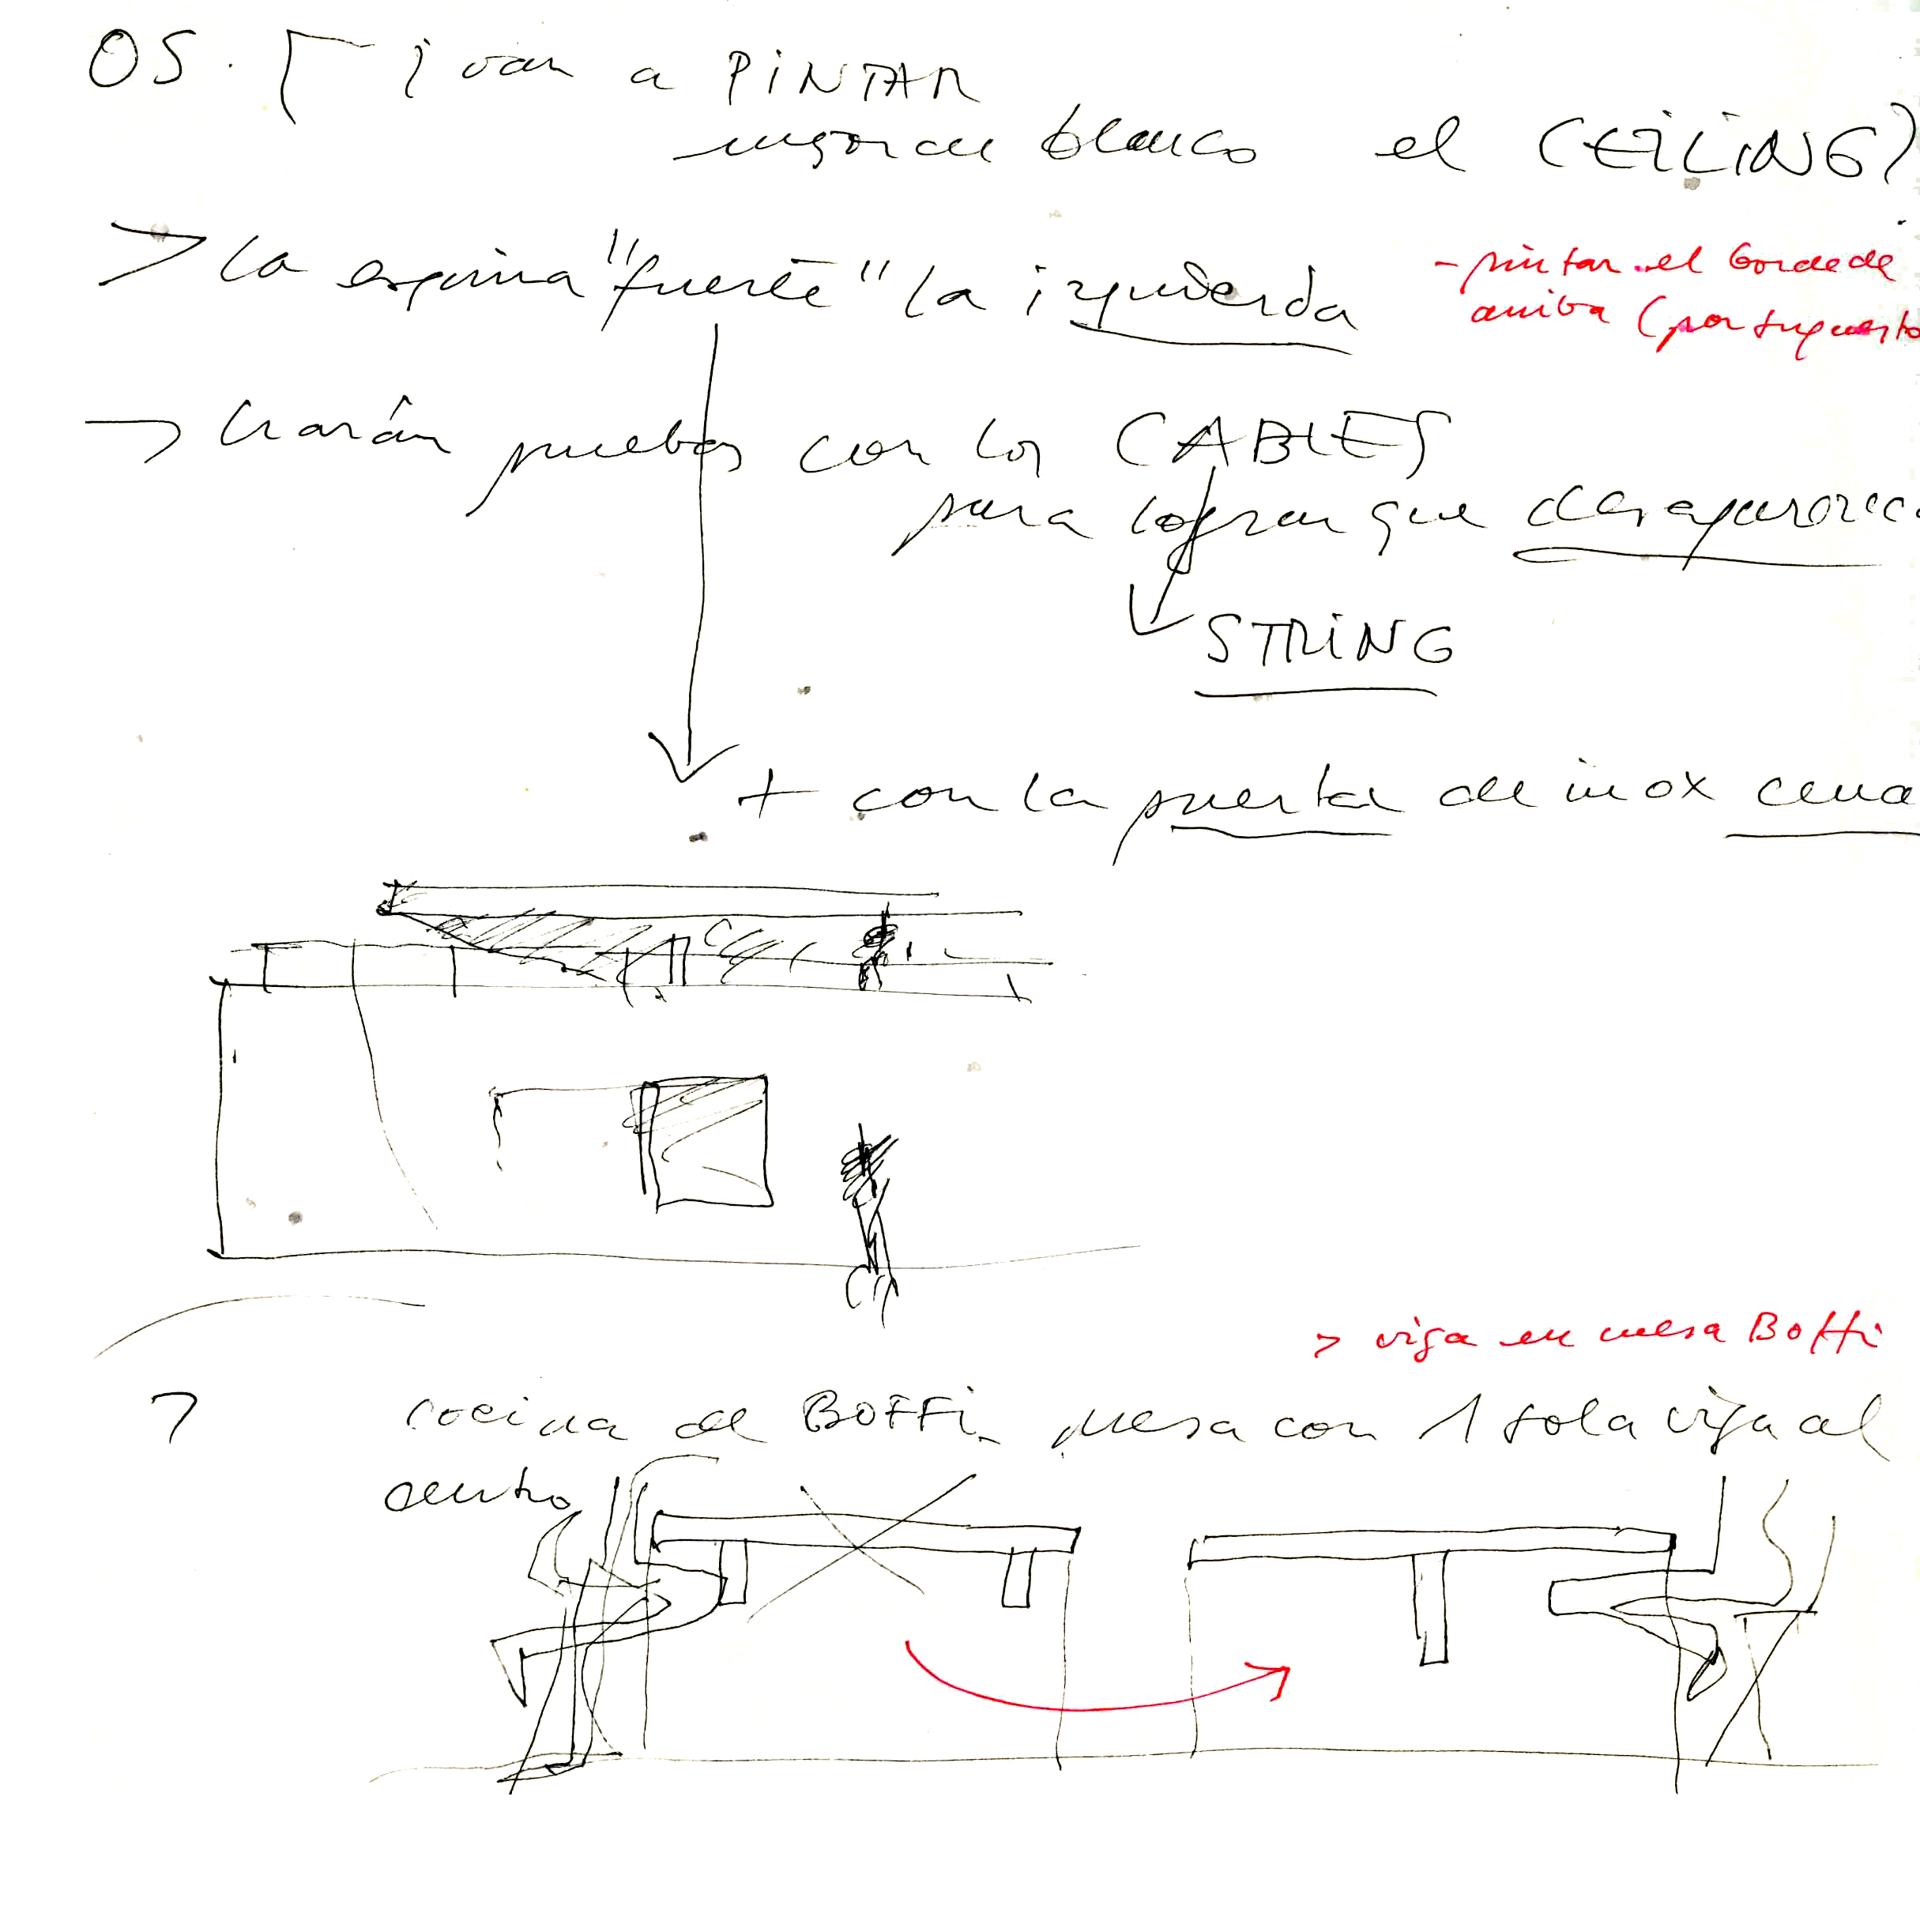 OS. ¿van a PINTAR
mejor de blanco el CEILING?
> La esquina "fuerte" la izquierda
- pintar el borde de
arriba (por supuesto
→ harán pruebas con los CABLES
para lograr que desaparezca
STRING
+ con la puerta de inox
> viga en mesa Boffi
cocina de BOFFI. mesa con 1 sola viga al
centro